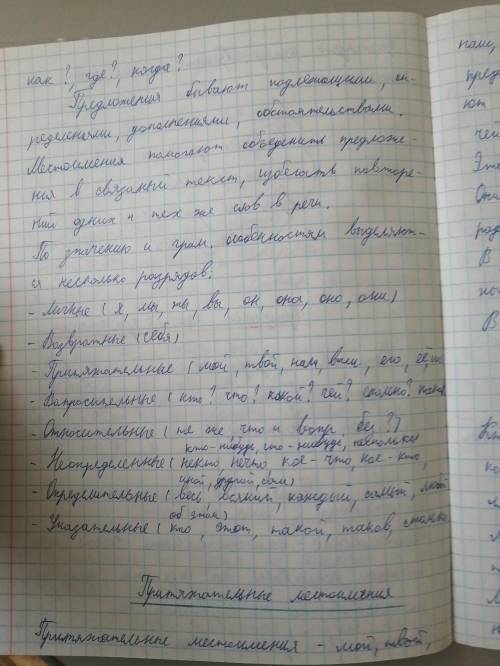 как?, где?, когда?
Предложения бывают подлежащими, оп-
ределениями, дополнениями, обстоятельствами.
Местоимения помогают объеденить предложе-
ния в связаный текст, избегать повторе-
ний одних и тех же слов в речи.
По значению и грам. особенностям выделяют-
ся несколько разрядов:
- Личные (я, мы, ты, вы, он, она, оно, они)
- Возвратные (себя)
- Притяжательные (мой, твой, наш, ваш, его, её, их
- Вопросительные (кто? что? какой? чей? сколько? каков
- Относительные (те же, что и вопр. без ?)
кто-нибудь, что-нибудь, несколько
- Неопределенные (некто, нечто, кое-что, кое-кто,
иной, другой, сам)
- Определительные (весь, всякий, каждый, самый, любой
об этом)
- Указательные (кто, этот, такой, таков, столько
Притяжательные местоимения
Притяжательные местоимения - мой, твой,
наш,
пред
ют
чей
Это
Отн
род
В
В